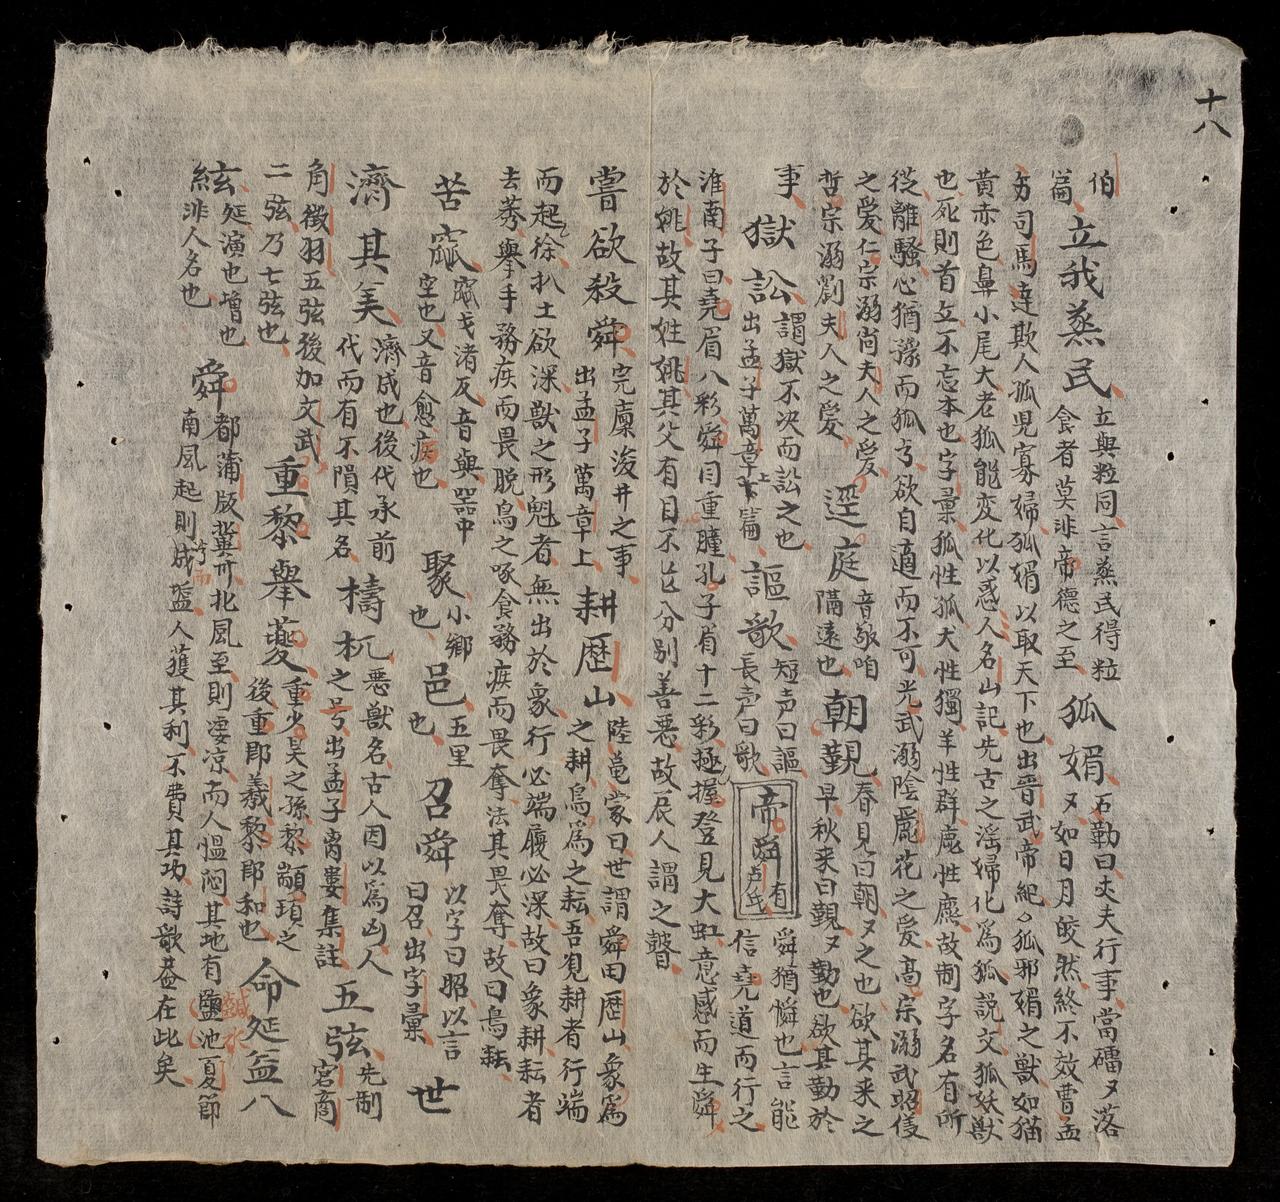 伯篇 立我蒸民 立與粒同言蒸民得粒食者莫非帝德之至 狐媚 石勒曰丈夫行事當礌々落々如日月皎然終不效曹孟
司馬達欺人孤児寡婦狐媚以取天下也出晋武帝紀〻狐邪媚之獣如猫
黄赤色鼻小尾大老狐能変化以惑人名山記先古之滛婦化為狐説文狐妖獣
也死則首丘不忘本也字彙狐性孤犬性獨羊性群鹿性麤故制字名有所
従離騒心猶豫而狐兮欲自適而不可光武溺陰麗花之愛高宗溺武昭儀
之愛仁宗溺尚夫人之愛哲宗溺劉夫人之愛 逕庭 音敬咱隔遠也 朝覲 春見曰朝々之也欲其来之早秋来曰覲々勤也欲其勤於
事 獄訟 謂獄不决而訟之也出孟子萬章上篇 謳歌 短声曰謳長声曰歌 帝舜有虞氏 舜猶憐也言能信堯道而行之
淮南子曰堯眉八彩舜目重瞳孔子眉十二彩極握登見大虹意感而生舜
於姚故其姓姚其父有目不分別善悪故人謂之瞽
嘗欲殺舜 完廩浚井之事出孟子萬章上 耕歴山 陸亀蒙曰世謂舜田歴山象為之耕鳥為之耘吾観耕者行端
而起徐扒土欲深獣之形魁者無出於象行必端履必深故曰象耕耘者
去莠挙手務疾而畏脱鳥之啄食務疾而畏奪法其畏奪故曰鳥耘
苦窳 窳戈渚反音與器中空也又音愈疾也 聚 小郷也 邑 五里也 召舜 以字曰昭以言曰召出字彙 世
濟其美 濟成也後代承前代而有不隕其名 檮杌 悪獣名古人因以為凶人之号出孟子离婁集註 五弦 先制宮商
角徴羽五弦後加文武二弦乃七弦也 重黎舉夔 重少昊之孫黎顓頊之後重即羲黎即和也 命延益八
絃 延演也増也絃非人名也 舜 都蒲版冀州北風至則凄凉而人慍悶其地有鹽池夏節南風起則成盬人獲其利不費其功詩歌蓋在此矣
十八